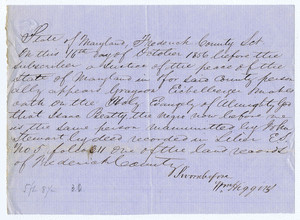 State of Maryland, Frederick County Sct
On this 16th day of October 1856 before the
subscriber a Justice of the peace of the
State of Maryland in & for said County person
ally appears Grayson Eichelberger makes
oath on the Holy Evangely of Almighty God
that Isaac Beatty the negro now before me
is the same person manumitted by John
Stewart by deed recorded in Liber E.S.
No 5 folio 811 one of the land records
of Frederick County
Sworn before
Wm Meggers